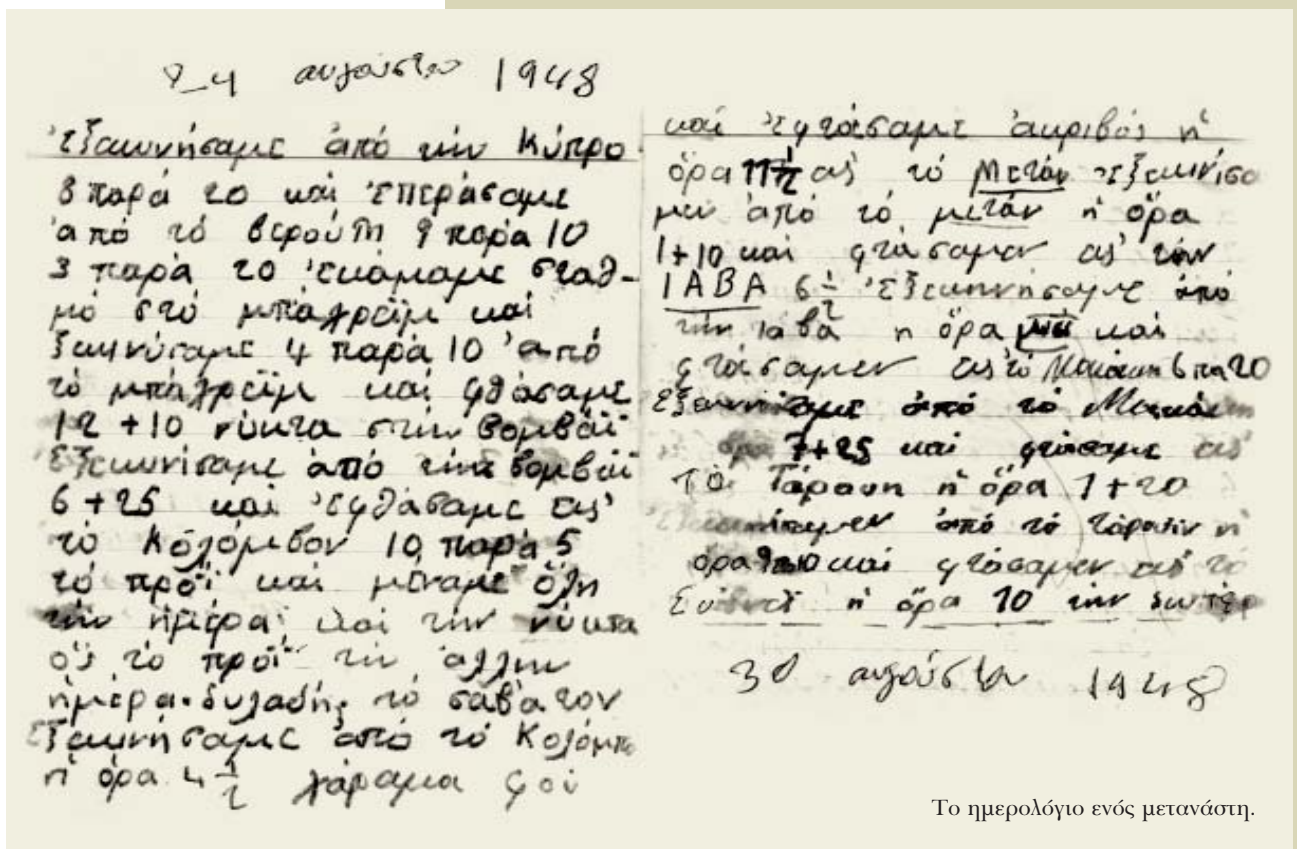 24 αυγούστου 1948
ἐξεκινήσαμε ἀπό την Κύπρο
8 παρά 20 και ἐπεράσαμε
ἀπό τό βερούτη 9 παρά 10
3 παρά 20 ἐκάμαμε σταθ-
μό στό μπαχρέϊμ και
ξεκινύσαμε 4 παρά 10 ἀπό
τό μπαχρέϊμ και φθάσαμε
12 + 10 νύκτα στην βομβάϊ
Εξεκινίσαμε ἀπό την βομβάϊ
6 + 25 και ἐφθάσαμε εις
τό Κολόμβον 10 παρά 5
τό πρόϊ και μέναμε ὅλη
την ἡμέρα και την νύκτα
ὅς τό πρόϊ τιν ἄλλην
ἡμέρα δυλαδής τό σάβατον
Εξεκινήσαμε ἀπό τό Κολόμπο
ἡ όρα 4 1/2 χάραμα φού
και ἐφτάσαμε ἀκριβός ἡ
ὅρα 11 1/2 εις τό Μετάν ἐξεκινίσα
μεν ἀπό τό μετάν ἡ ὅρα
1 + 10 και φτάσαμεν εις την
ΙΑΒΑ 6 1/2 ἐξεκινήσαμε ἀπό
την ιάβα η ὅρα και
φτάσαμεν εις τό 6 πα 20
Εξεκινήσαμε ἀπό τό
όρα 7 + 25 και φτάσαμε εις
Τό Τάρουιν ἡ ὅρα 1 + 20
ἀπό τό ἡ
όρα και φτάσαμεν εις τό
Σύδνεϊ ἡ ὅρα 10 την
30 αυγούστου 1948
Το ημερολόγιο ενός μετανάστη.